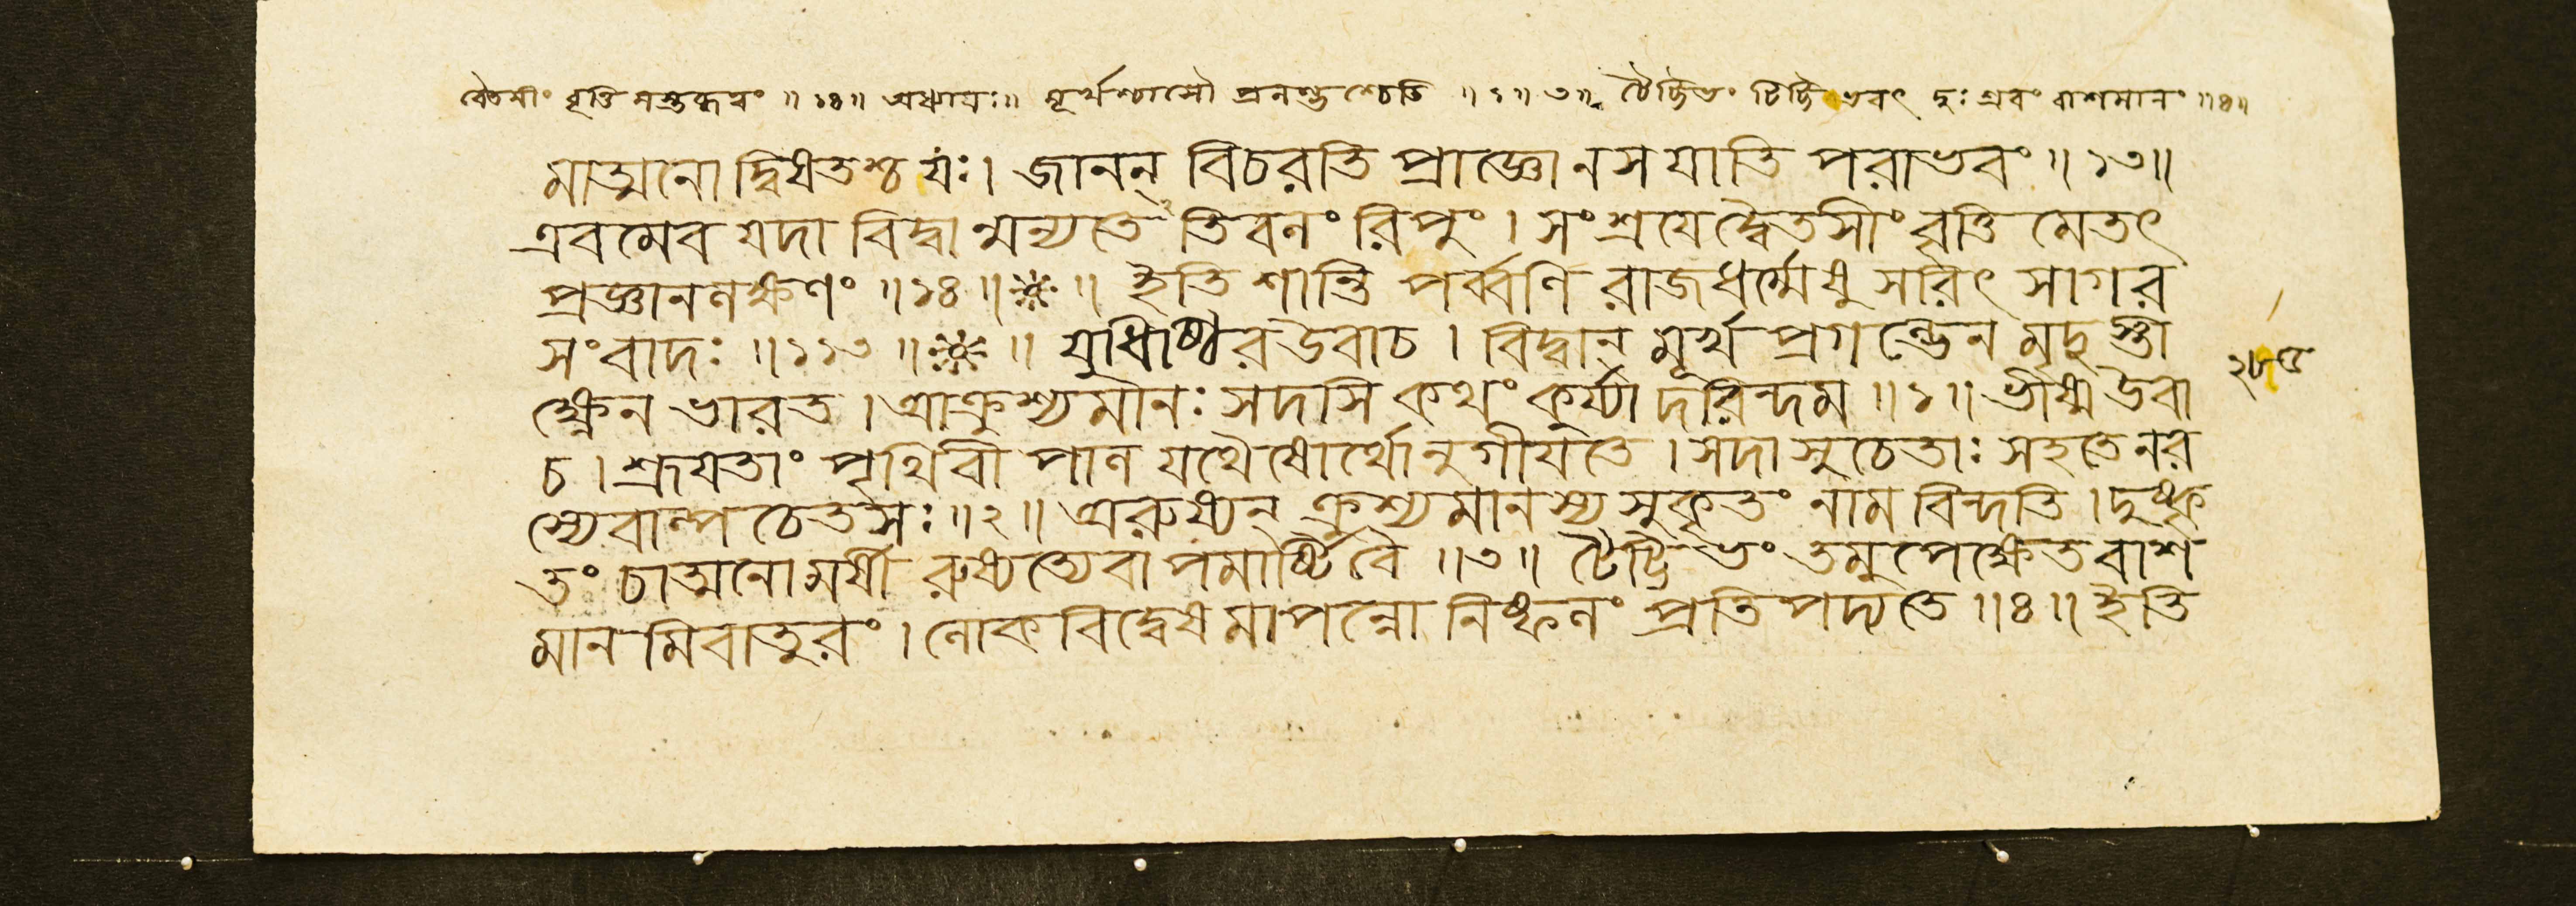 বৈতসীং বৃত্তি মস্তব্ধত্বং ॥ ১৪ ॥ অধ্যায়ঃ ॥ মূর্খশ্চাসৌ প্রগল্ভশ্চেতি ॥ ১ ॥ ৩ ॥ টৈট্টিভং টিট্টিভবৎ দুঃ এবং বাশমানং ॥ ৪ ॥
মাত্মনো দ্বিষতশ্চ যঃ । জানন্ বিচরতি প্রাজ্ঞো ন স যাতি পরাভবং ॥ ১৩ ॥
এবমেব যদা বিদ্বান্মন্যতে তিবলং রিপুং । সংশ্রয়েদ্বৈতসীং বৃত্তি মেতৎ
প্রজ্ঞানলক্ষণং ॥ ১৪ ॥ ॥ ইতি শান্তি পর্ব্বণি রাজধর্ম্মেষু সরিৎ সাগর
সংবাদঃ ॥ ১১৩ ॥ ॥ যুধিষ্ঠির উবাচ । বিদ্বান্ মূর্খ প্রগল্ভেন মৃদু স্তী
ক্ষ্ণেন ভারত । আক্রুশ্যমানঃ সদসি কথং কুর্য্যা দরিন্দম ॥ ১ ॥ ভীষ্ম উবা
চ । শ্রূয়তাং পৃথিবী পাল যথৈষোর্থোনুগীয়তে । সদা সুচেতাঃ সহতে নর
স্যেবাল্প চেতসঃ ॥ ২ ॥ অরুষ্যন্ ক্রুশ্যমানস্য সুকৃতং নাম বিন্দতি । দুষ্কৃ
তং চাত্মনো মর্ষী রুষ্যত্যেবাপমার্ষ্টি বৈ ॥ ৩ ॥ টৈট্টিভং তমুপেক্ষেত বাশ
মান মিবাতুরং । লোক বিদ্বেষ মাপন্নো নিষ্ফলং প্রতিপদ্যতে ॥ ৪ ॥ ইতি